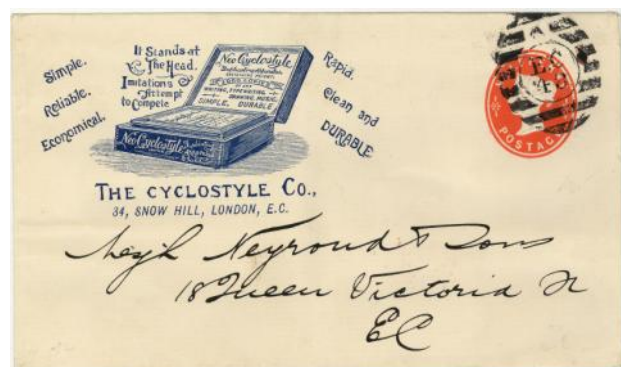 Simple.
Reliable.
Economical.
It Stands at
The Head.
Imitations
Attempt
to Compete
Neo Cyclostyle
WRITING, TYPEWRITING,
DRAWING, MUSIC.
SIMPLE, DURABLE
Neo Cyclostyle
Rapid.
Clean and
DURABLE.
THE CYCLOSTYLE CO.,
34, SNOW HILL, LONDON, E.C.
POSTAGE
Neyroud & Sons
18 Queen Victoria St
EC